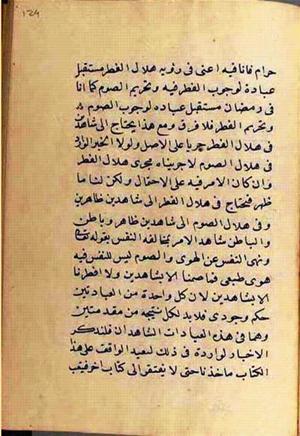 ١٢٤
حرام فانا فيه اعنى فى رؤية هلال الفطر مستقبل
عبادة لوجوب الفطر فيه وتحريم الصوم كما انا
فى رمضان مستقبل عباده لوجوب الصوم
وتحريم الفطر فلا فرق ومع هذا يحتاج الى شاهدين
فى هلال الفطر جريا على الاصل ولولا الخبر الوارد
فى هلال الصوم لاجريناه مجرى هلال الفطر
وان كان الامر فيه على الاحتمال ولكن لنا ما
ظهر فنحتاج فى هلال الفطر الى شاهدين ظاهرين
وفى هلال الصوم الى شاهدين ظاهر وباطن
والباطن شاهد الامر بمخالفة النفس بقوله تعالى
ونهى النفس عن الهوى والصوم ليس للنفس فيه
هوى طبيعى فما صمنا الا بشاهدين ولا افطرنا
الا بشاهدين لان كل واحدة من العبادتين
حكم وجودى فلا بد لكل نتيجة من مقدمتين
وهما فى هذه العبادات الشاهدان فلنذكر
الاخبار الواردة فى ذلك ليعيد الواقف على هذا
الكتاب ماخذنا حتى لا يفتقر الى كتاب اخر فيتعب